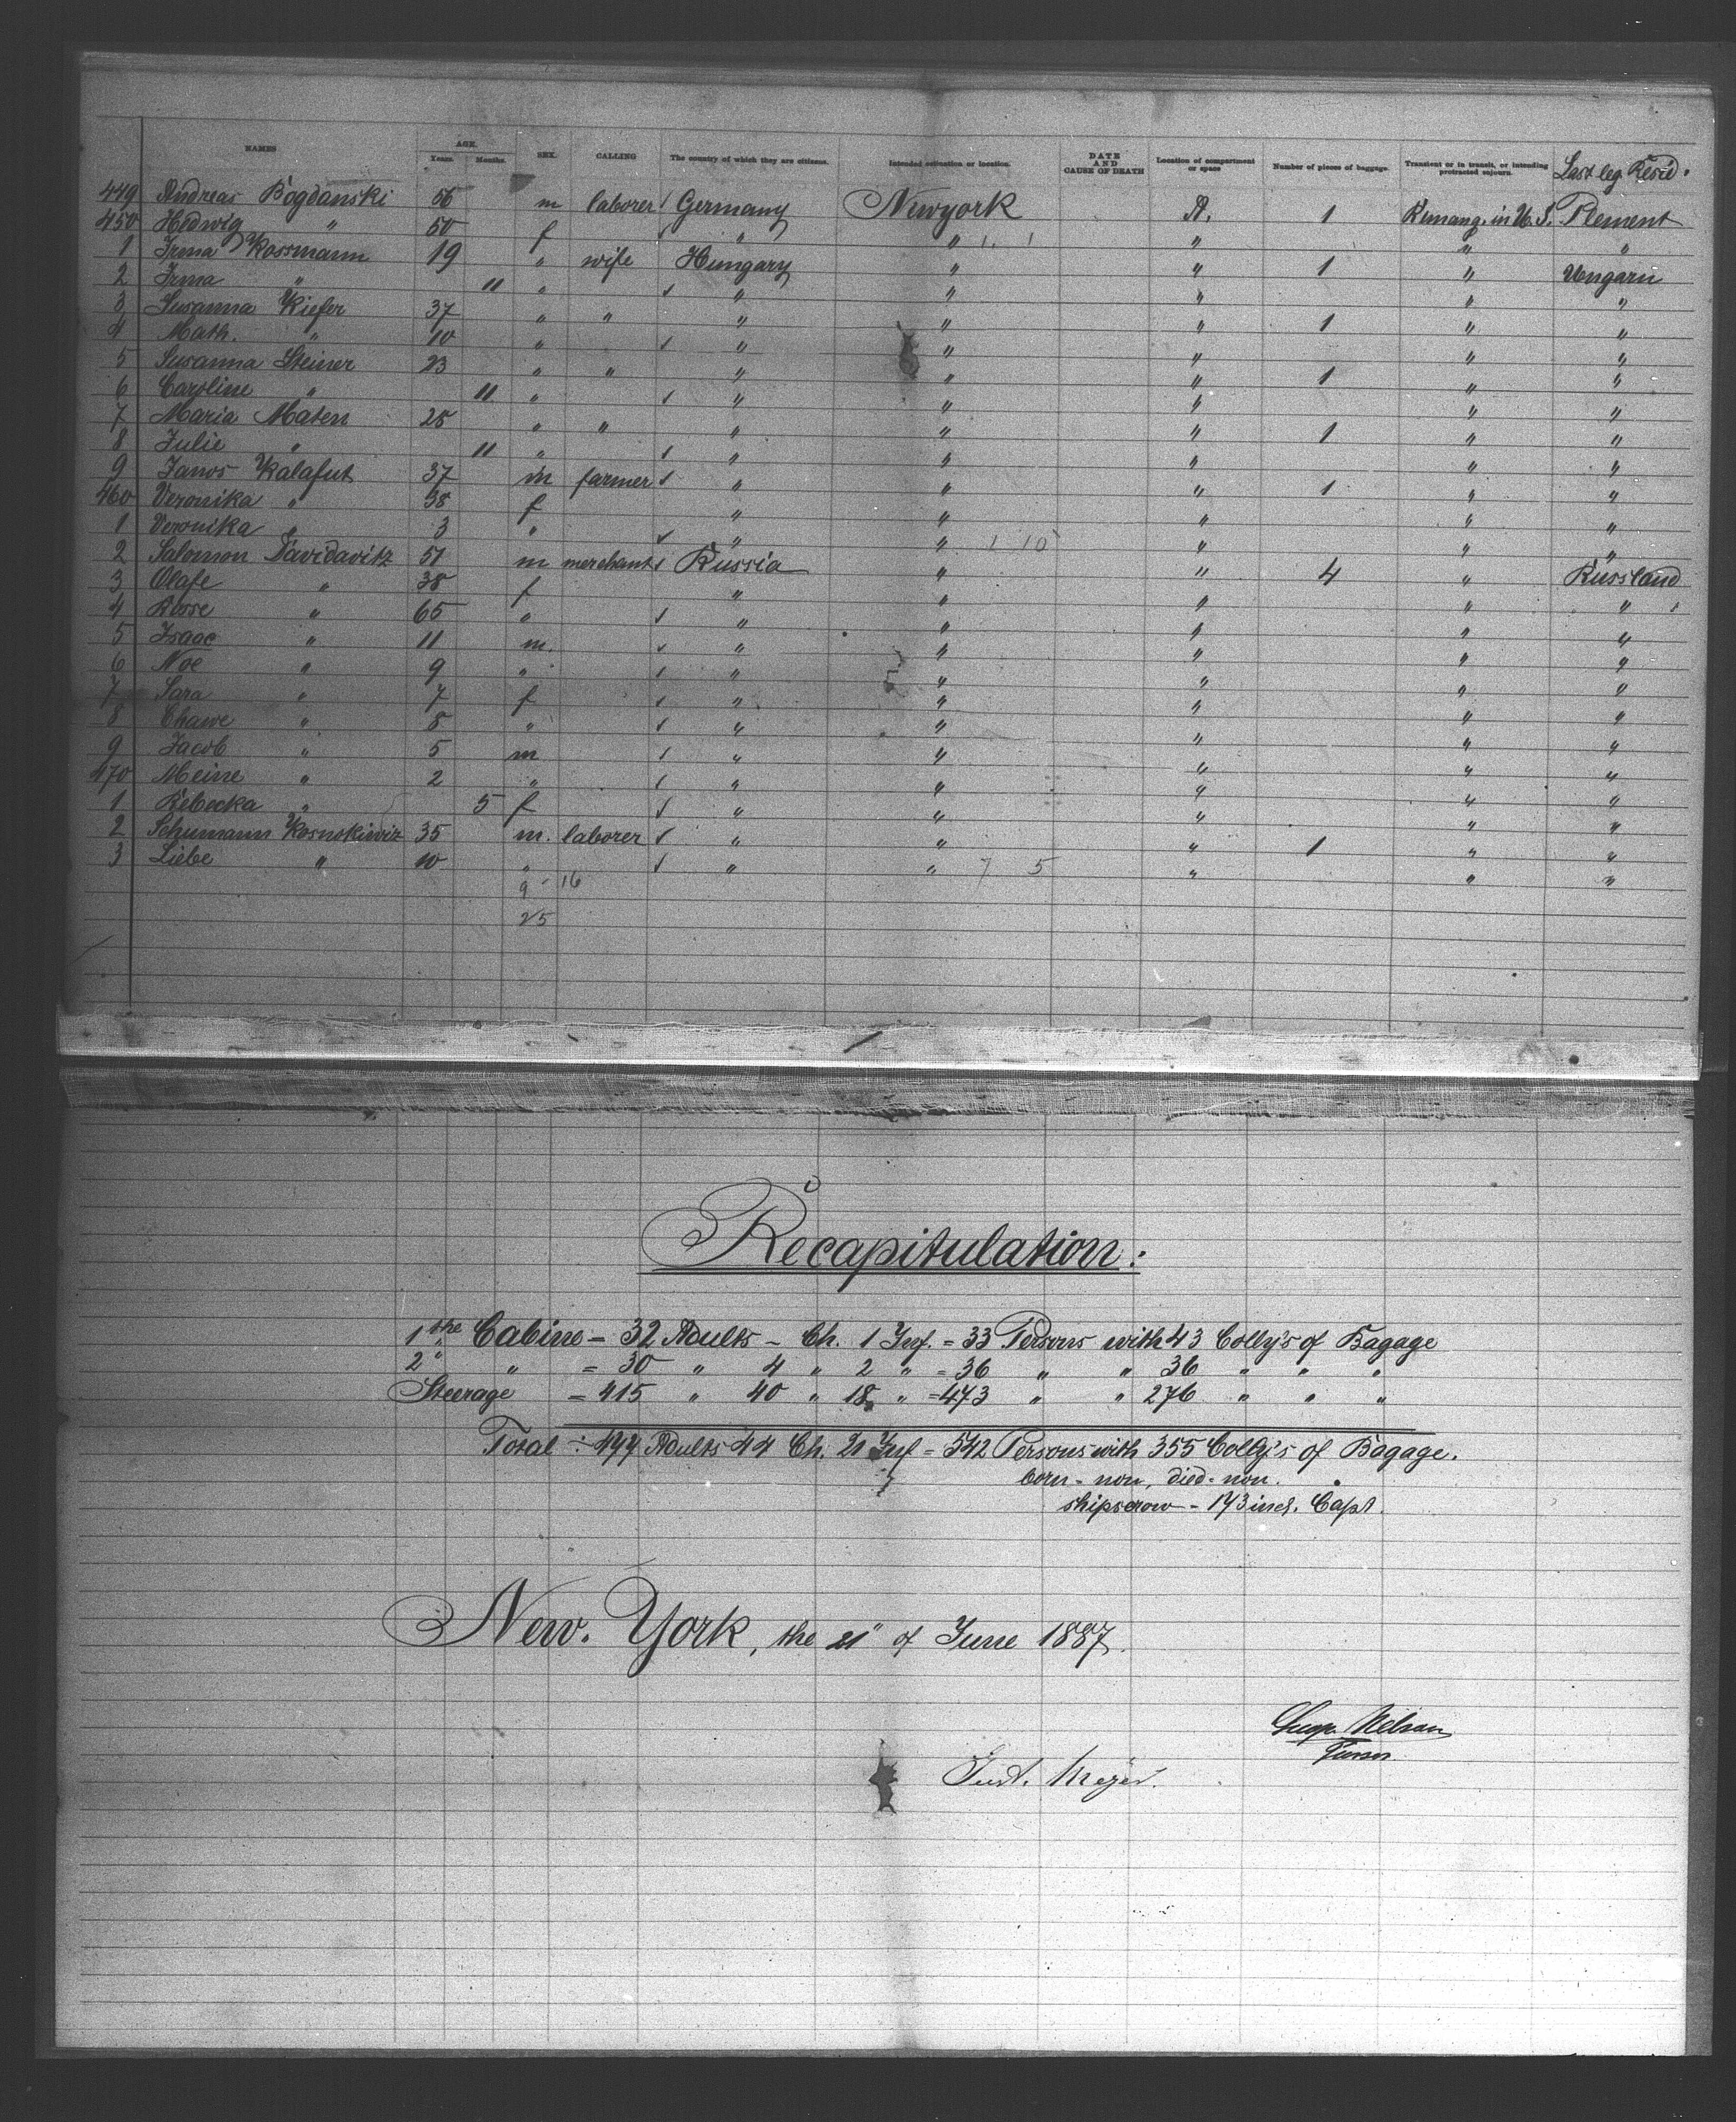 NAMES AGE. Years. Months. SEX. CALLING The country of which they are citizens. Intended destination or location. DATE AND CAUSE OF DEATH Location of compartment or space Number of pieces of baggage. Transient or in transit, or intending protracted sojourn. Last leg. Resid.
449 Andreas Bogdanski 56 m laborer Germany Newyork A. 1 in U. S. Plement
450 Hedwig " 50 f " " 1. 1 " " "
1 Irma Kossmann 19 " wife Hungary " " 1 " Ungarn
2 Irma " 11 " " " " " "
3 Susanna Kiefer 37 " " " " " 1 " "
4 Math. " 10 " " " " " "
5 Susanna Steiner 23 " " " " " 1 " "
6 Caroline " 11 " " " " " "
7 Maria Maten 25 " " " " " 1 " "
8 Julie " 11 " " " " " "
9 Janos Kalafut 37 m farmer " " " 1 " "
460 Veronika " 38 f " " " " "
1 Veronika " 3 " " " 1 10 " " "
2 Salomon Davidavitz 51 m merchant Russia " " 4 " Russland
3 Olafe " 38 f " " " " "
4 Rosse " 65 " " " " " "
5 Isaac " 11 m. " " " " "
6 Noe " 9 " " " " " "
7 Sara " 7 f " " " " "
8 Chawe " 8 " " " " " "
9 Jacob " 5 m " " " " "
470 Meine " 2 " " " " " "
1 Rebecka " 5 f " " " " "
2 Schumann Kosnokiewiz 35 m. laborer " " " 1 " "
3 Liebe " 10 " " " 7 5 " " "
9 - 16
25
Recapitulation:
1the Cabine = 32 Adults - Ch. 1 Inf. = 33 Persons with 43 Colly's of Bagage
2" " = 30 " 4 " 2 " = 36 " " 36 " " "
Steerage = 415 " 40 " 18 " = 473 " " 276 " " "
Total : 477 Adults 44 Ch. 21 Inf = 542 Persons with 355 Colly's of Bagage.
born - non, died - non.
shipscrow - 173 incl. Capt.
New. York, the 21" of June 1887.
Gust. Meyer.